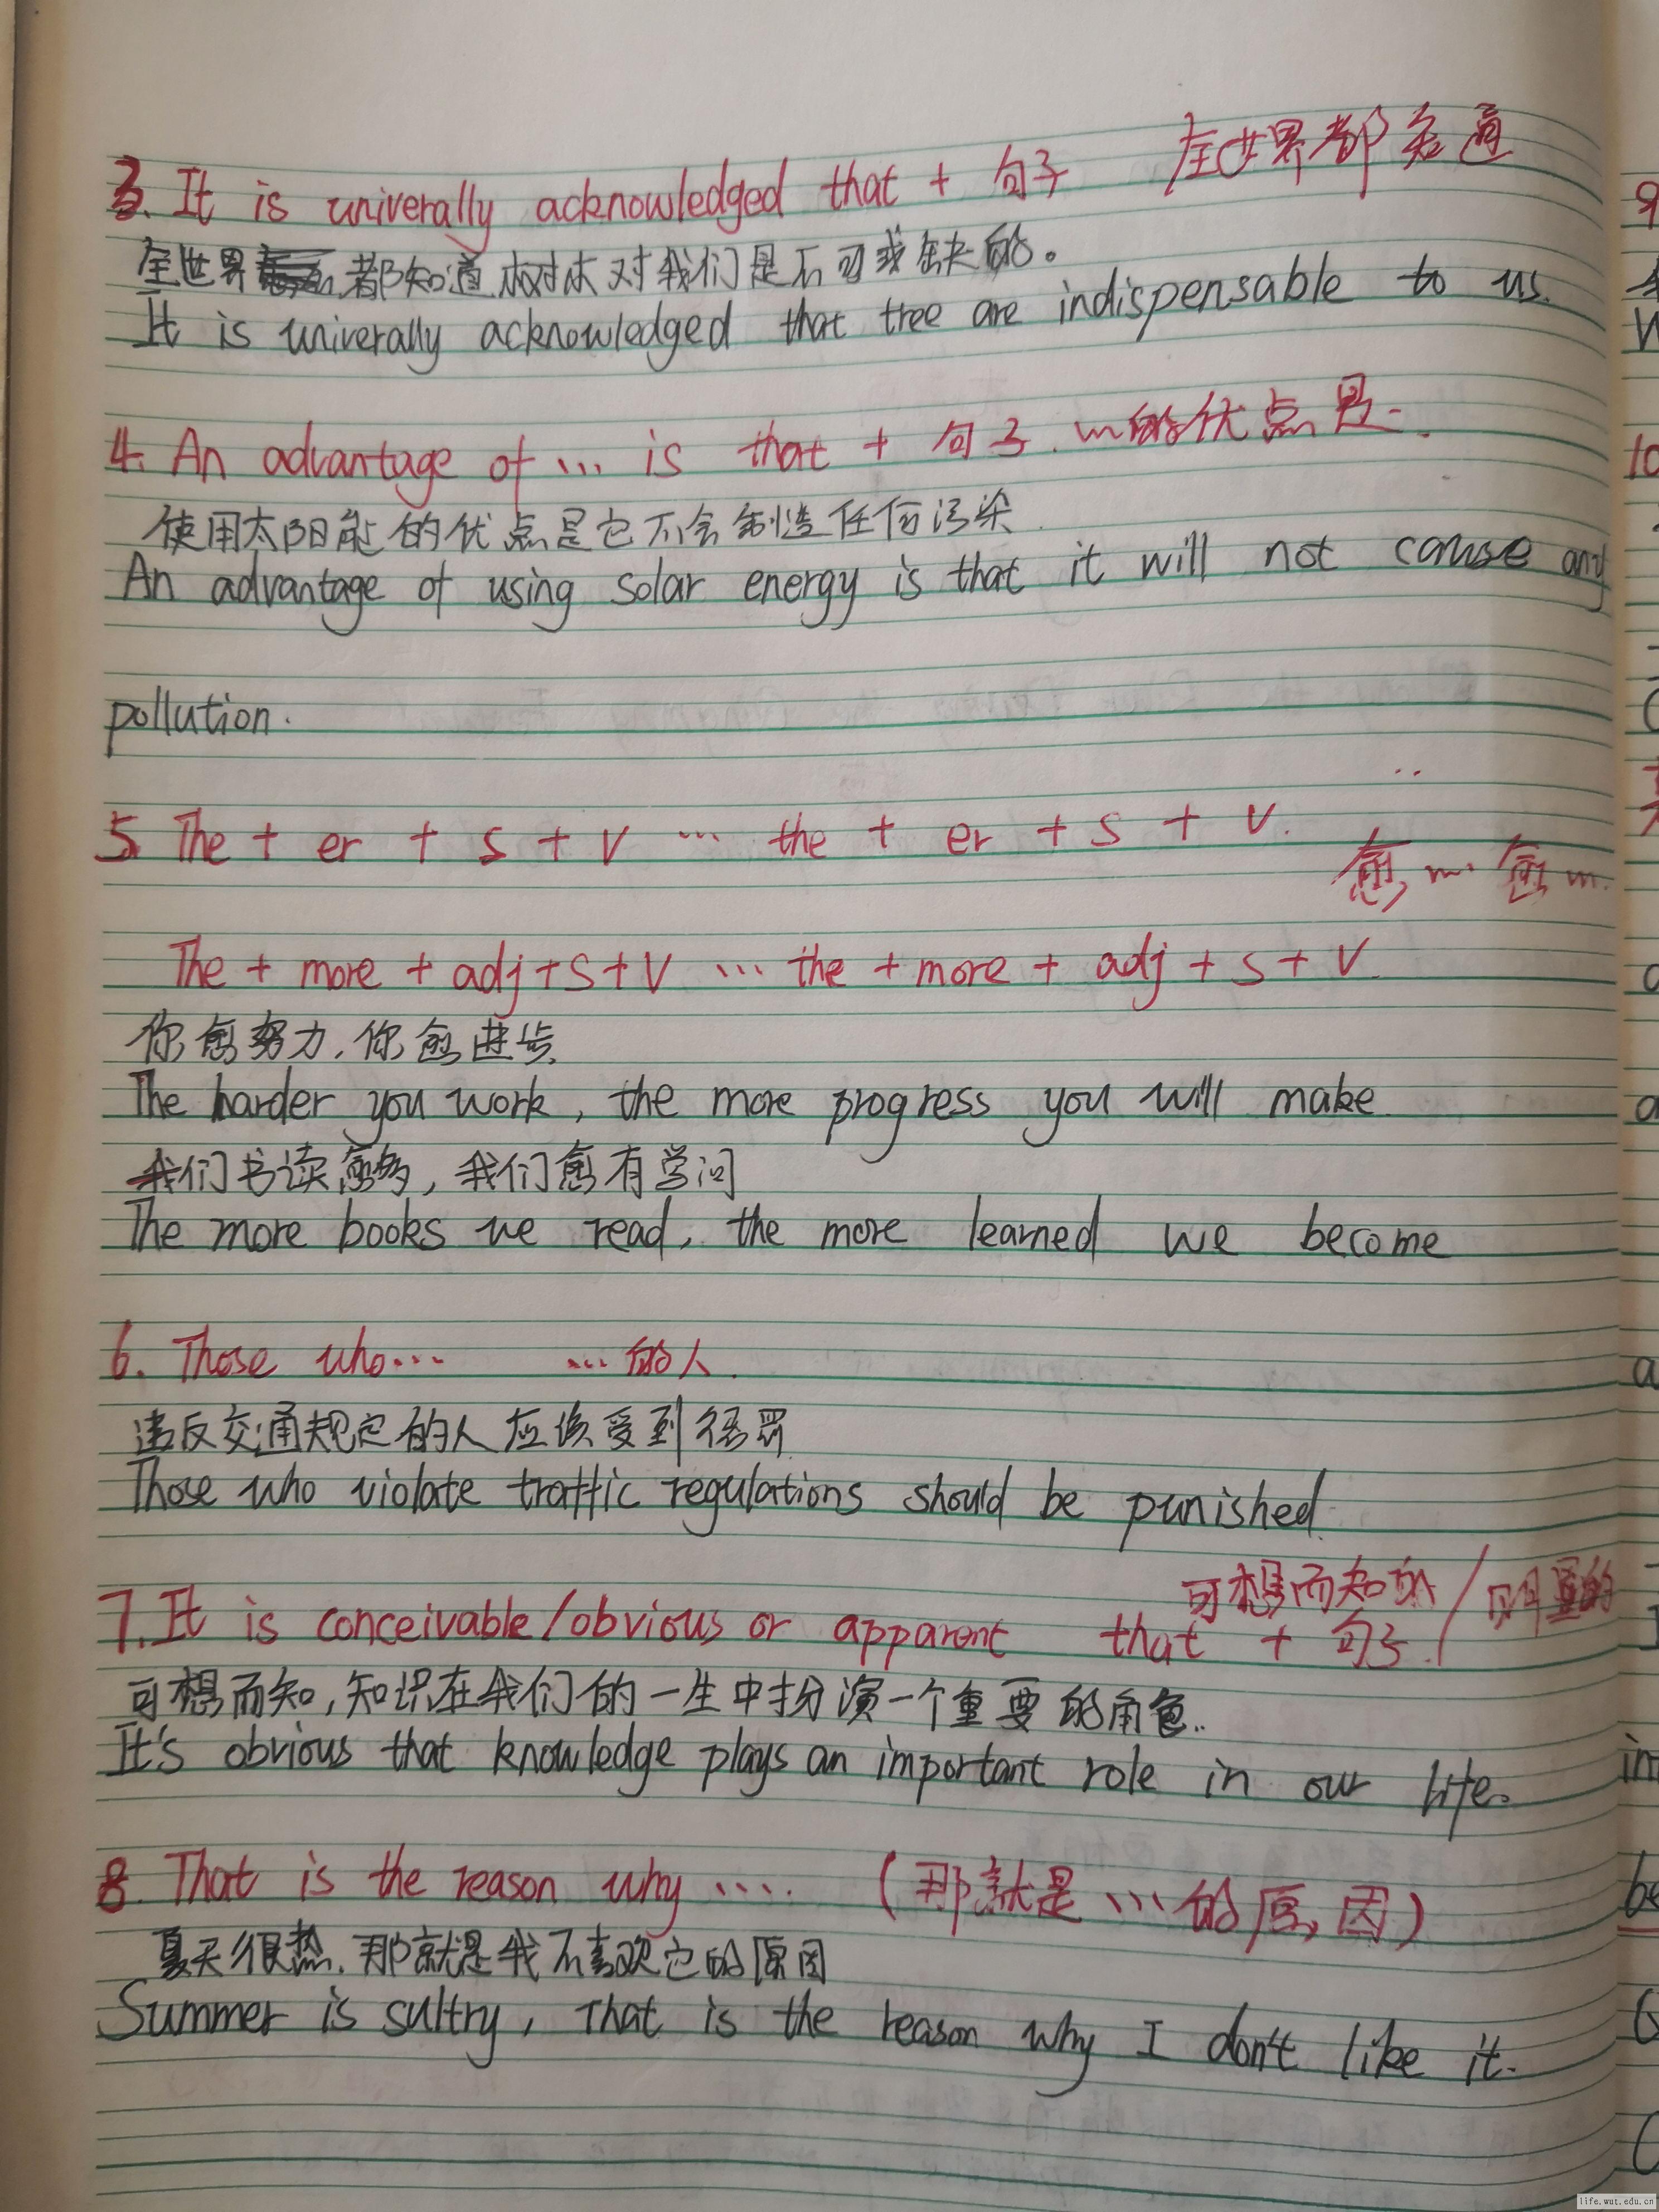 3. It is univerally acknowledged that + 句子 全世界都知道
全世界都知道树木对我们是不可或缺的。
It is univerally acknowledged that tree are indispensable to us.
4. An advantage of ... is that + 句子. ...的优点是..
使用太阳能的优点是它不会制造任何污染.
An advantage of using solar energy is that it will not cause any
pollution.
5. The + er + s + v ... the + er + s + v.
愈...愈...
The + more + adj + s + v ... the + more + adj + s + v
你愈努力,你愈进步.
The harder you work, the more progress you will make.
我们书读愈多,我们愈有学问
The more books we read, the more learned we become
6. Those who... ...的人.
违反交通规定的人应该受到惩罚
Those who violate traffic regulations should be punished.
可想而知的/明显的
7. It is conceivable/obvious or apparent that + 句子.
可想而知,知识在我们的一生中扮演一个重要的角色..
It's obvious that knowledge plays an important role in our life.
8. That is the reason why .... (那就是...的原因)
夏天很热.那就是我不喜欢它的原因
Summer is sultry, That is the reason why I don't like it.
life.wut.edu.cn